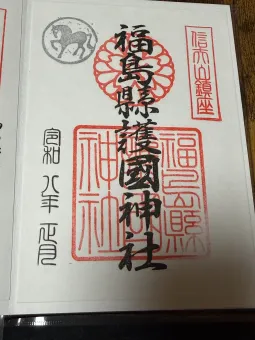 信夫山鎮座
福島縣護國神社
福島縣護國神社
令和八年 正月